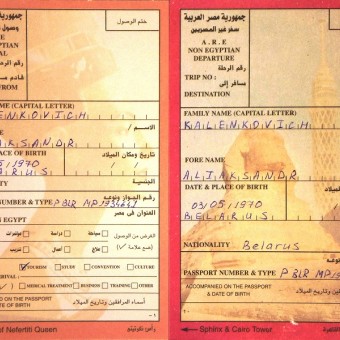 جمهورية مصر العربية
ختم الوصول
وصول
EGYPTIAN
رقم الرحلة
قادم م
FROM
NAME (CAPITAL LETTER)
ENKOVICH
الاسم /
AKSANDR
PLACE OF BIRTH
تاريخ ومكان الميلاد
05/1970
ARUS
الجنسية
NUMBER & TYPE PBLR MP
العنوان فى مصر
EGYPT
الغرض من الوصول
دراسة
سياحة
مؤتمرات
ثقافة
(ضع علامة √)
تدريب
أعمال
علاج
أخرى
TOURISM
STUDY
CONVENTION
CULTURE
ARRIVAL
MEDICAL TREATMENT
BUSINESS
TRAINING
OTHER
ACCOMPANIED ON THE PASSPORT
& DATE OF BIRTH
أسماء المرافقين وتاريخ الميلاد
- ١ -
of Nefertiti Queen
رأس نفرتيتى
جمهورية مصر العربية
سفر غير المصريين
A . R . E
NON EGYPTIAN
DEPARTURE
رقم الرحلة
TRIP NO :
مسافر إلى
DESTINATION
FAMILY NAME (CAPITAL LETTER)
KALENKOVICH
FORE NAME
ALIAKSANDR
DATE & PLACE OF BIRTH
03/05/1970
BELARUS
NATIONALITY Belarus
PASSPORT NUMBER & TYPE PBLR MP19
ACCOMPANIED ON THE PASSPORT
& DATE OF BIRTH
أسماء المرافقين وتاريخ الميلاد
Sphinx & Cairo Tower